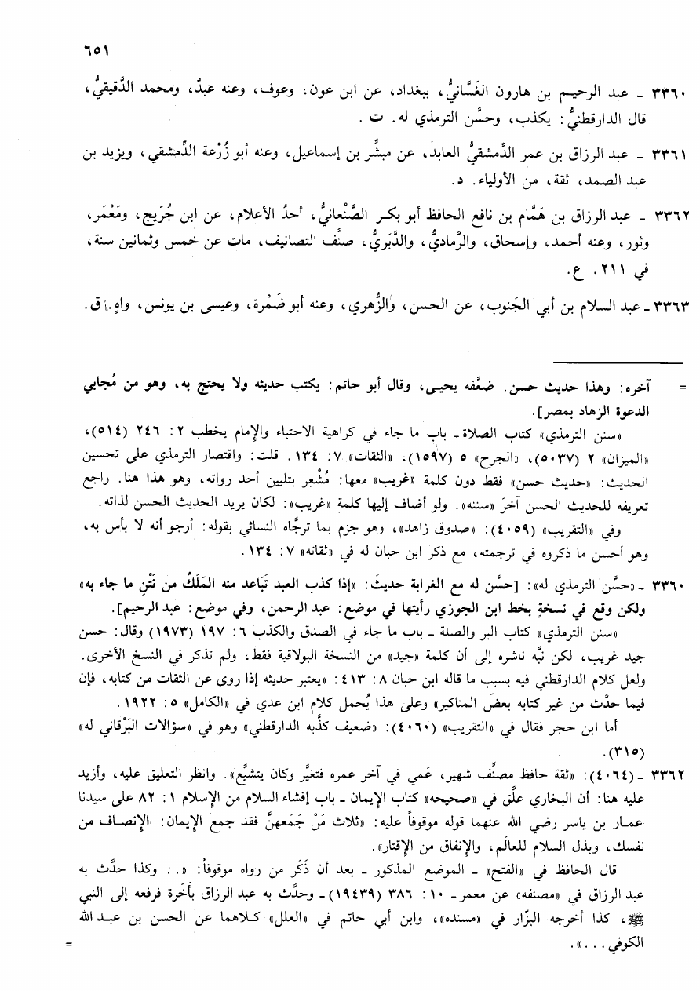 ٦٥١
٣٣٦٠ ـ عبد الرحيم بن هارون الغَسَّانيُّ، ببغداد، عن ابن عون، وعوف، وعنه عبدٌ، ومحمد الدَّقيقيُّ،
قال الدارقطنيُّ: يكذب، وحسَّن الترمذي له. ت .
٣٣٦١ ـ عبد الرزاق بن عمر الدِّمشقيُّ العابد، عن مبشِّر بن إسماعيل، وعنه أبو زُرْعة الدِّمشقي، ويزيد بن
عبد الصمد، ثقة، من الأولياء. د.
٣٣٦٢ ـ عبد الرزاق بن هَمَّام بن نافع الحافظ أبو بكر الصَّنْعانيُّ، أحدُ الأعلام، عن ابن جُريج، ومَعْمَر،
وثور، وعنه أحمد، وإسحاق، والرَّماديُّ، والدَّبَريُّ، صنَّف التصانيف، مات عن خمس وثمانين سنة،
في ٢١١. ع.
٣٣٦٣ ـ عبد السلام بن أبي الجَنوب، عن الحسن، والزُّهري، وعنه أبو ضَمْرة، وعيسى بن يونس، واهٍ. ق.
= آخره: وهذا حديث حسن. ضعَّفه يحيى، وقال أبو حاتم: يكتب حديثه ولا يحتج به، وهو من مُجابي
الدعوة الزهاد بمصر].
«سنن الترمذي» كتاب الصلاة ـ باب ما جاء في كراهية الاحتباء والإمام يخطب ٢: ٢٤٦ (٥١٤)،
«الميزان» ٢ (٥٠٣٧)، «الجرح» ٥ (١٥٩٧)، «الثقات» ٧: ١٣٤. قلت: واقتصار الترمذي على تحسين
الحديث: «حديث حسن» فقط دون كلمة «غريب» معها: مُشْعر بتليين أحد رواته، وهو هذا هنا. راجع
تعريفه للحديث الحسن آخرَ «سننه». ولو أضاف إليها كلمة «غريب»: لكان يريد الحديث الحسن لذاته.
وفي «التقريب» (٤٠٥٩): «صدوق زاهد»، وهو جزم بما ترجَّاه النسائي بقوله: أرجو أنه لا بأس به،
وهو أحسن ما ذكروه في ترجمته، مع ذكر ابن حبان له في «ثقاته» ٧: ١٣٤.
٣٣٦٠ ـ «حسَّن الترمذي له»: [حسَّن له مع الغرابة حديثَ: «إذا كذب العبد تَباعد منه المَلَكُ من نَتْنِ ما جاء به»
ولكن وقع في نسخةٍ بخط ابن الجوزي رأيتها في موضع: عبد الرحمن، وفي موضع: عبد الرحيم].
«سنن الترمذي» كتاب البر والصلة ـ باب ما جاء في الصدق والكذب ٦: ١٩٧ (١٩٧٣) وقال: حسن
جيد غريب، لكن نبَّه ناشره إلى أن كلمة «جيد» من النسخة البولاقية فقط، ولم تذكر في النسخ الأخرى.
ولعل كلام الدارقطني فيه بسبب ما قاله ابن حبان ٨: ٤١٣: «يعتبر حديثه إذا روى عن الثقات من كتابه، فإن
فيما حدَّث من غير كتابه بعضَ المناكير» وعلى هذا يُحمل كلام ابن عدي في «الكامل» ٥: ١٩٢٢.
أما ابن حجر فقال في «التقريب» (٤٠٦٠): «ضعيف كذَّبه الدارقطني» وهو في «سؤالات البَرْقاني له»
(٣١٥).
٣٣٦٢ ـ (٤٠٦٤): «ثقة حافظ مصنِّف شهير، عَمي في آخر عمره فتغيَّر وكان يتشيَّع». وانظر التعليق عليه، وأزيد
عليه هنا: أن البخاري علَّق في «صحيحه» كتاب الإيمان ـ باب إفشاء السلام من الإسلام ١: ٨٢ على سيدنا
عمار بن ياسر رضي الله عنهما قوله موقوفاً عليه: «ثلاث مَنْ جَمعهنَّ فقد جمعَ الإيمان: الإنصاف من
نفسك، وبذل السلام للعالَم، والإنفاق من الإقتار».
قال الحافظ في «الفتح» ـ الموضع المذكور ـ بعد أن ذَكَر من رواه موقوفاً: «.. وكذا حدَّث به
عبد الرزاق في «مصنفه» عن معمر ـ ١٠: ٣٨٦ (١٩٤٣٩) ـ وحدَّث به عبد الرزاق بأَخَرة فرفعه إلى النبي
ﷺ، كذا أخرجه البزّار في «مسنده»، وابن أبي حاتم في «العلل» كلاهما عن الحسن بن عبد الله
الكوفي...». =